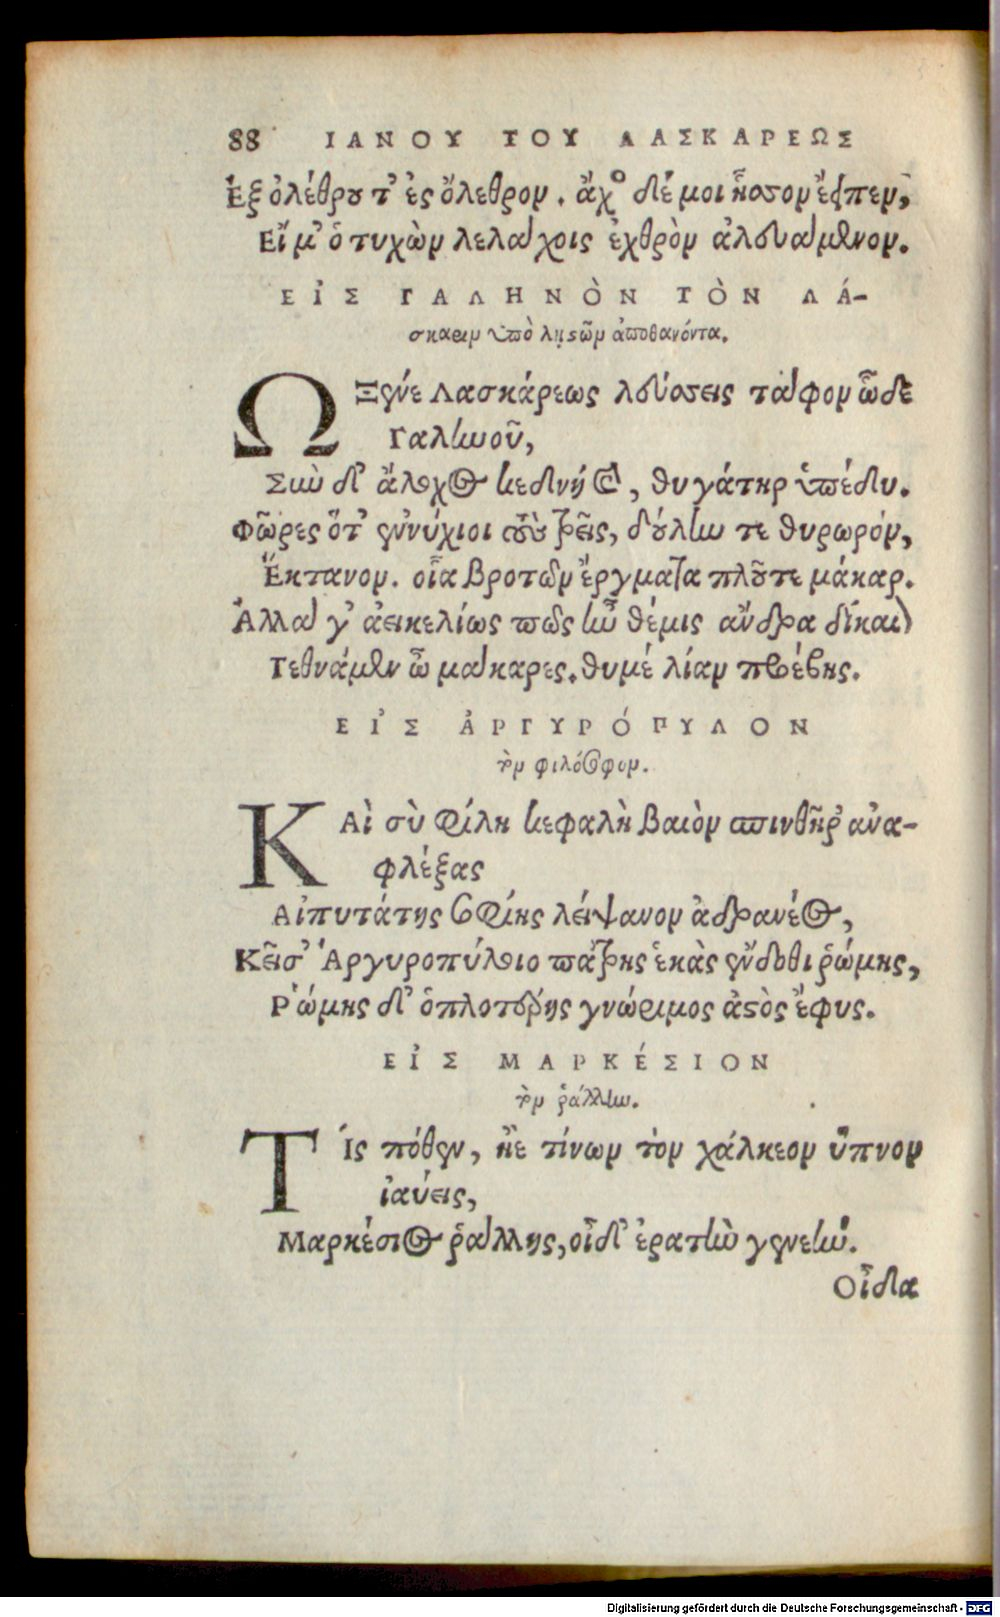 88 ΙΑΝΟΥ ΤΟΥ ΛΑΣΚΑΡΕΩΣ
Ἐξ ὀλέθρου τ' ἐς ὄλεθρον. ἄχος δέ μοι ἧσσον ἔειπεν,
Εἴ μ' ὁ τυχὼν λελάχοις ἐχθρὸν ἀλευάμενον.
ΕἸΣ ΓΑΛΗΝῸΝ ΤῸΝ ΛΆ-
σκαριν ὑπὸ λῃστῶν ἀποθανόντα.
ΩΞεῖνε Λασκάρεως λεύσσεις τάφον ὧδε
Γαληνοῦ,
Σὺν δ' ἄλοχος κεδνή θ', θυγάτηρ ὑπέδυ.
Φῶρες ὅτ' ἐννύχιοι σὺν τρεῖς, δούλην τε θυρωρόν,
Ἔκτανον. οἷα βροτῶν ἔργματα πλοῦτε μάκαρ.
Ἀλλά γ' ἀεικελίως πως ἦν θέμις ἄνδρα δίκαιον
Τεθνάμεν ὦ μάκαρες. θυμέ λίαν προέβης.
ΕἸΣ ἈΡΓΥΡΌΠΥΛΟΝ
τὸν φιλόσοφον.
ΚΑὶ σὺ φίλη κεφαλὴ βαιὸν σπινθῆρ' ἀνα-
φλέξας
Αἰπυτάτης σοφίης λείψανον ἀδρανέος,
Κεῖσ' Ἀργυροπύλοιο πάτρης ἑκὰς ἔνδοθι ῥώμης,
Ῥώμης δ' ὁπλοτέρης γνώριμος ἀστὸς ἔφυς.
ΕἸΣ ΜΑΡΚΈΣΙΟΝ
τὸν ῥάλλην.
ΤΊς πόθεν, ἠὲ τίνων τὸν χάλκεον ὕπνον
ἰαύεις,
Μαρκέσιος ῥάλλης, οἶδ' ἐρατὴν γενεήν.
Οἶδα
Digitalisierung gefördert durch die Deutsche Forschungsgemeinschaft - DFG